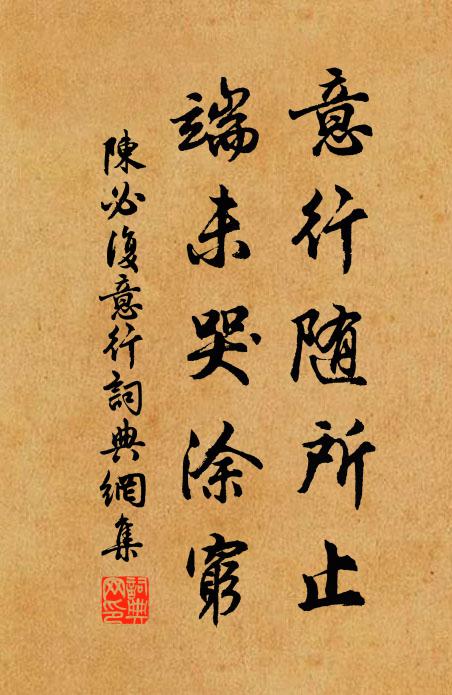 意行随所止
端未哭涂窮
陳必復意行詞典網集
詞典网印